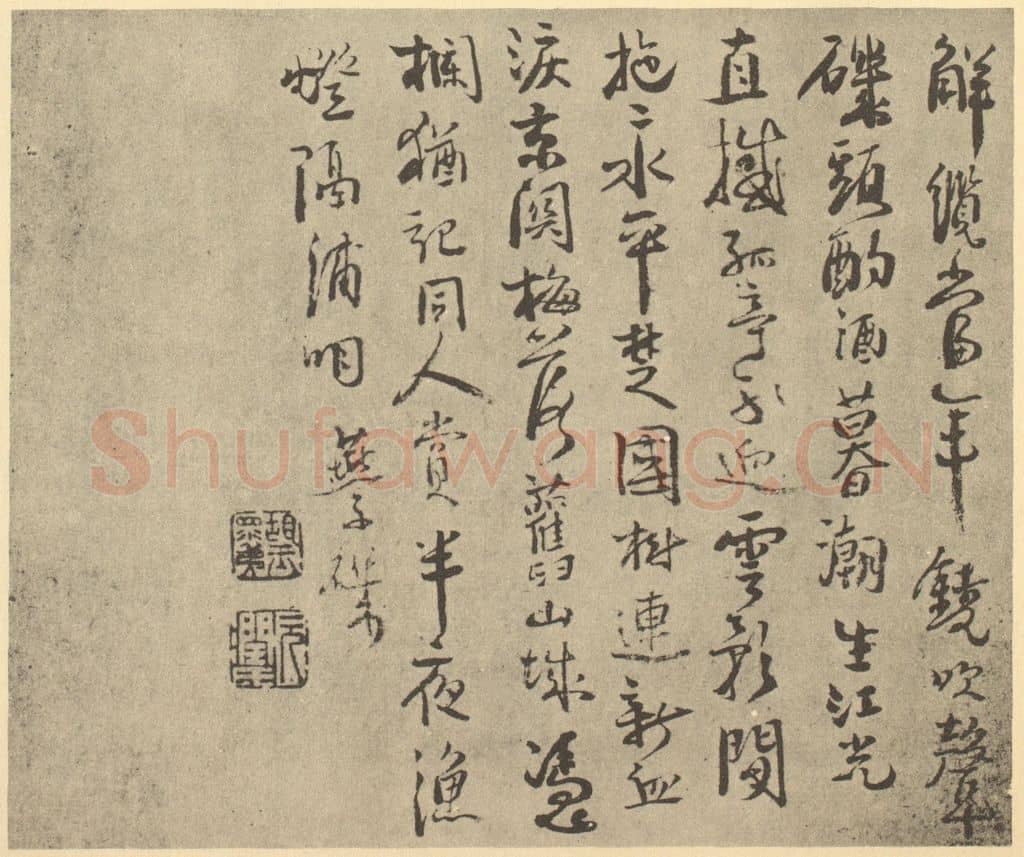 解纜當年鐃吹聲
磯頭酌酒暮潮生江光
直撼孤亭迥雲影閒
拖二水平楚國樹連新血
淚京関梅落舊山城憑
欄猶記同人賞半夜漁
燈隔浦明
燕子磯
Shufawang.CN